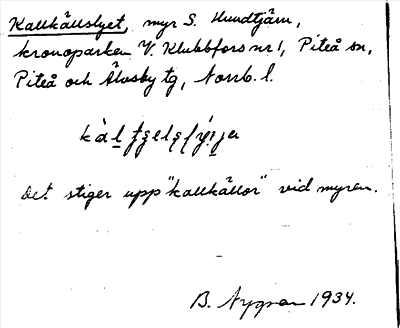 Kallkällslyet, myr S. Hundtjärn,
kronoparken V. Klubbfors nr 1, Piteå sn,
Piteå och Älvsby tg, Norrb. l.
Det stiger upp "kallkällor" vid myren.
B. Nygren 1934.